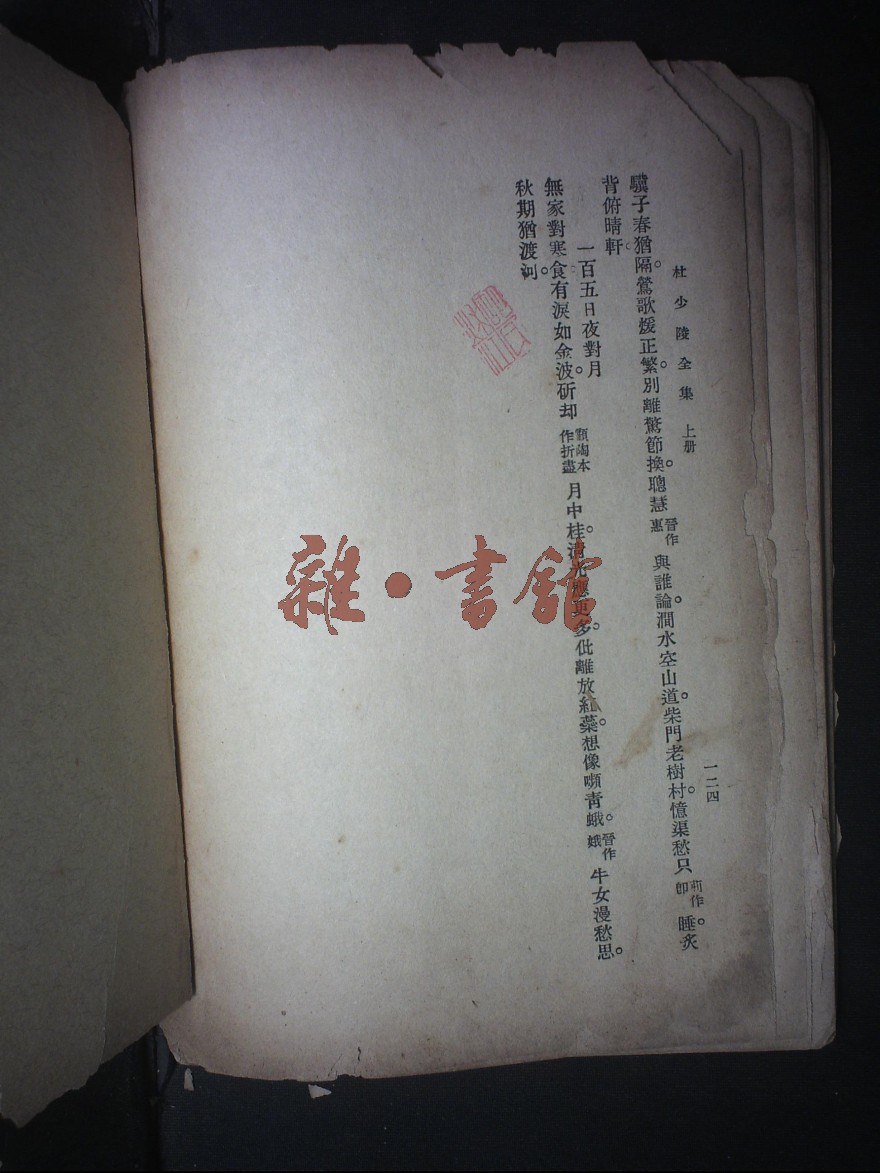 杜少陵全集 上册
一二四
驥子春猶隔。鶯歌煖正繁。別離驚節換。聰慧晉作惠與誰論。澗水空山道。柴門老樹村。憶渠愁只一作卽睡。炙
背俯晴軒。
一百五日夜對月
無家對寒食。有淚如金波。斫却顏竘本作折盡月中桂。清光應更多。仳離放紅蘂。想像嚬青蛾。晉作娥牛女漫愁思。
秋期猶渡河。
雜·書館